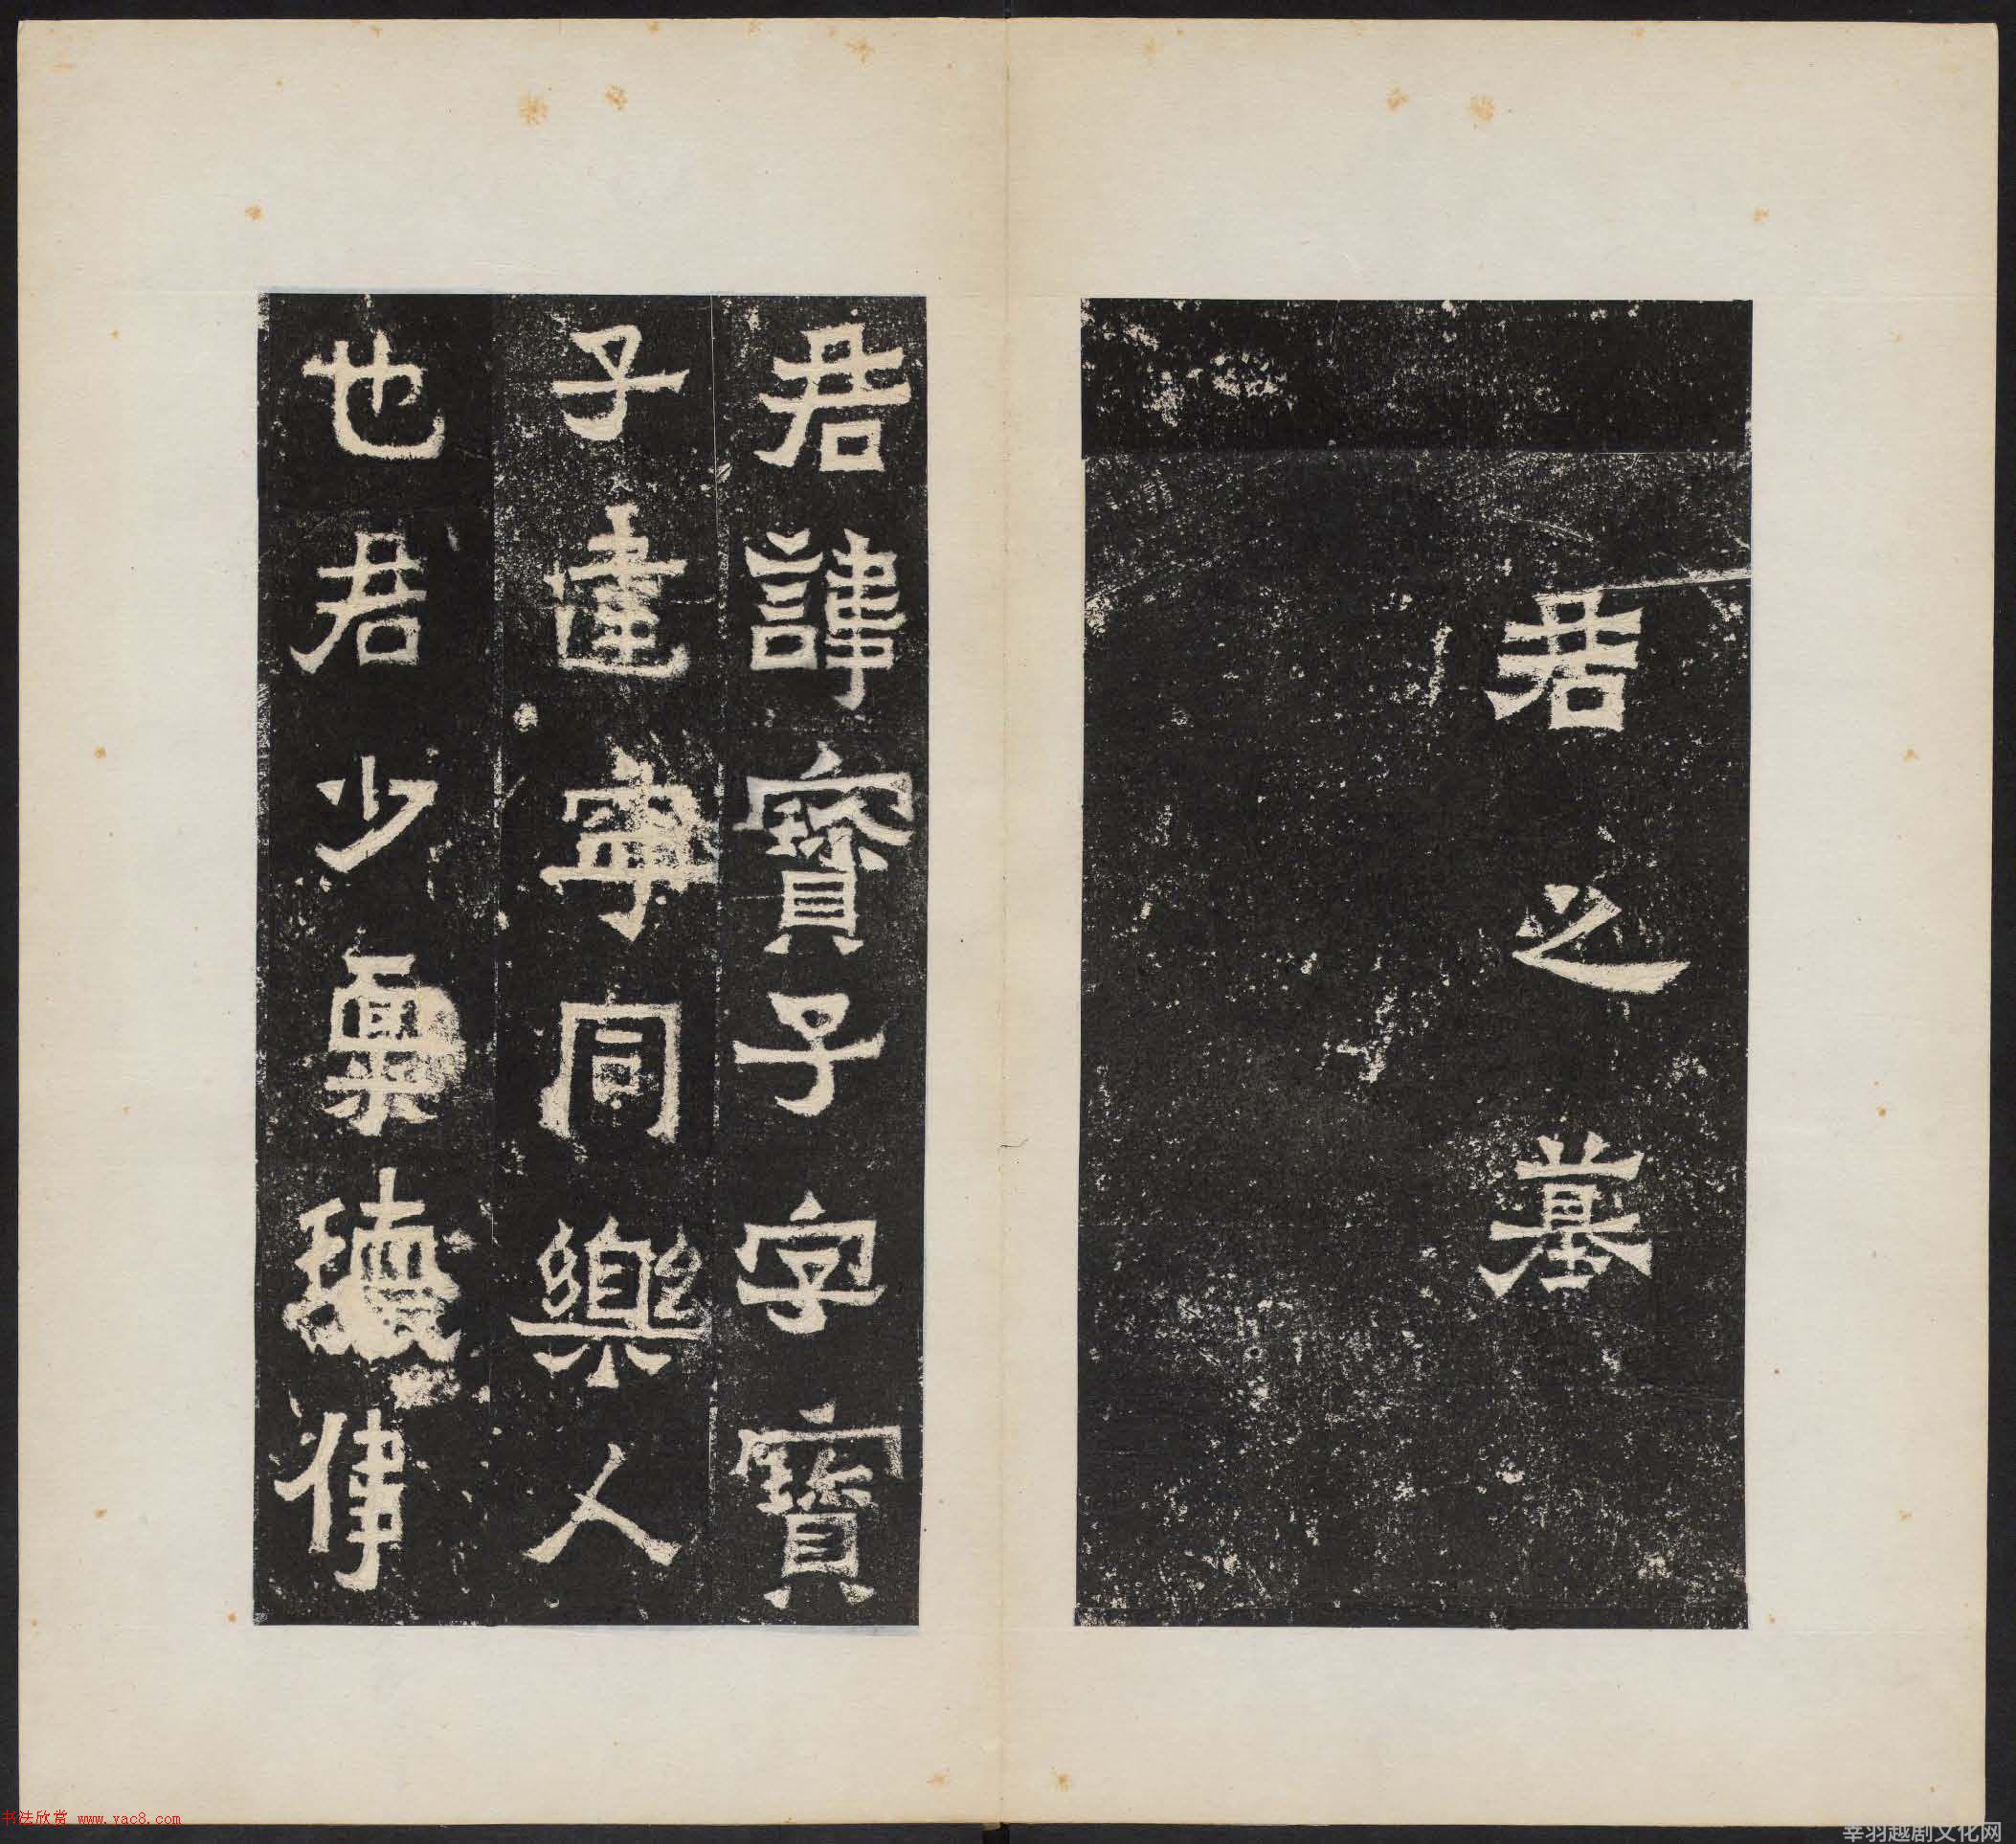 君之墓
君諱寶子字寶
子建寧同樂人
也君少稟瓌偉
书法欣赏 www.yac8.com
莘羽越剧文化网